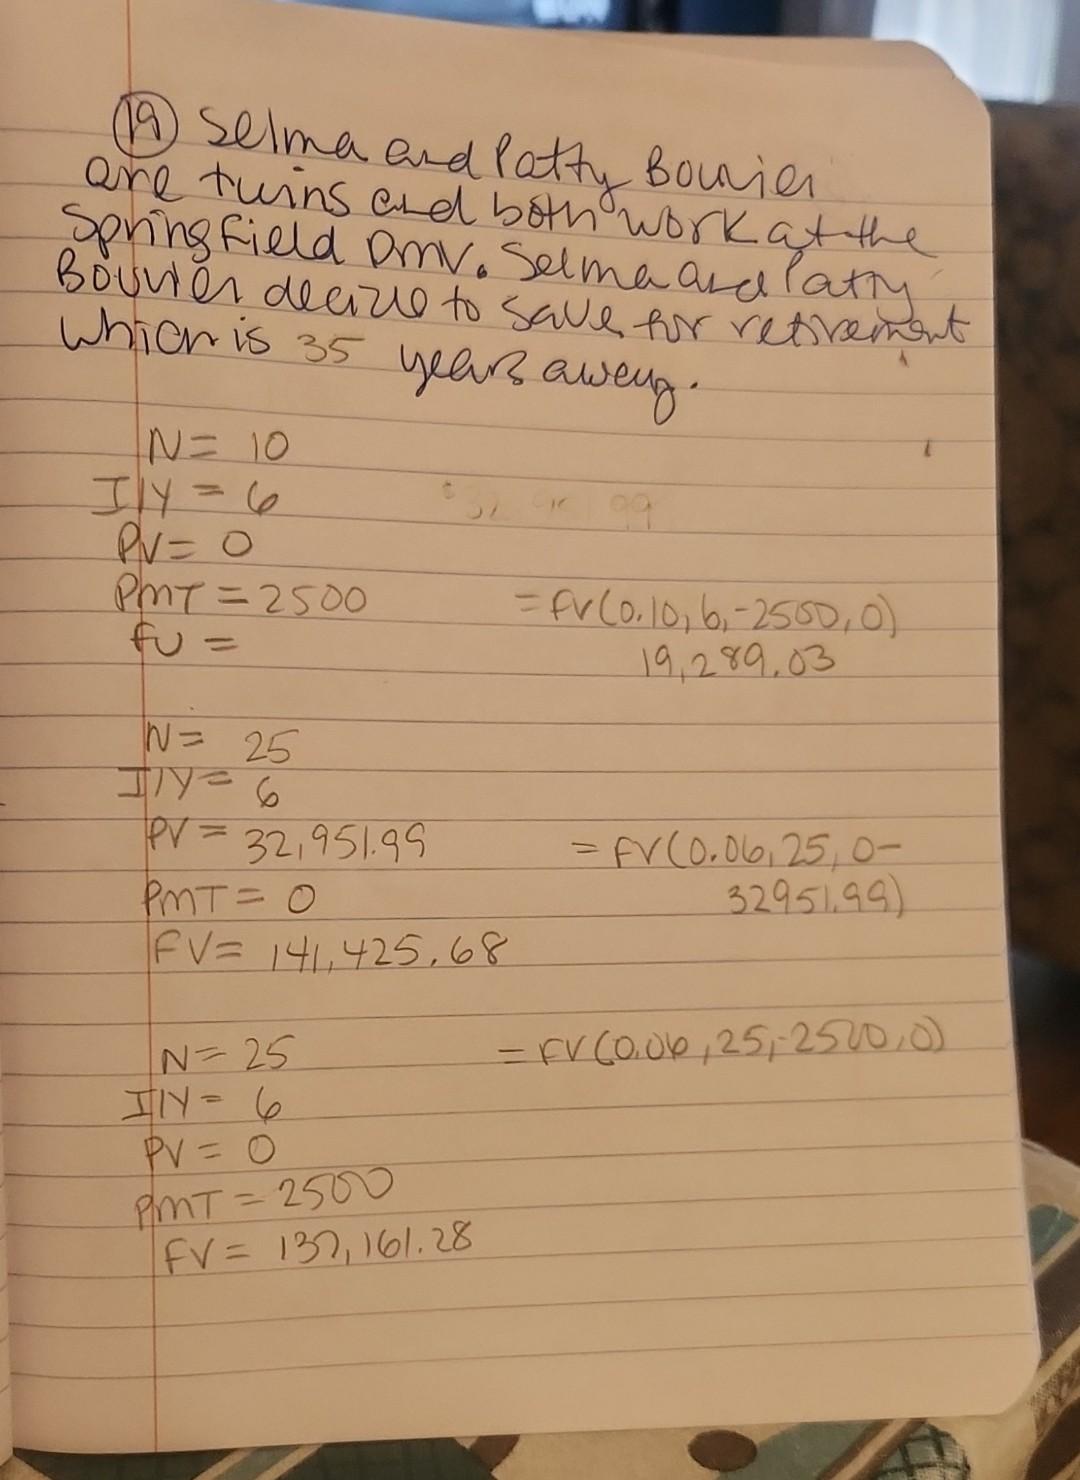 19 Selma and Patty Bouvier
are twins and both work at the
Springfield DMV. Selma and Patty
Bouvier decide to save for retirement
which is 35 years away.
N= 10
I/Y = 6
PV= 0
PMT = 2500 =FV(0.10,6,-2500,0)
FV = 19,289.03
N= 25
I/Y= 6
PV= 32,951.99 =FV(0.06,25,0-
PMT= 0 32951.99)
FV= 141,425.68
N= 25 =FV(0.06,25,-2500,0)
I/Y= 6
PV= 0
PMT = 2500
FV= 137,161.28